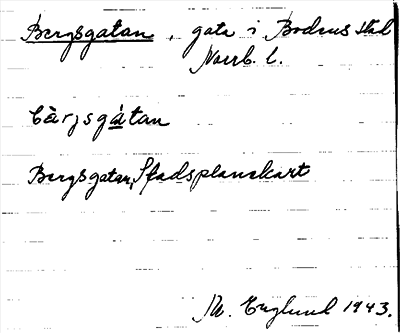 Bergsgatan, gata i Bodens stad
Norrb. l.
bàrjsgátan
Bergsgatan, Stadsplanekart
M. Englund 1943.